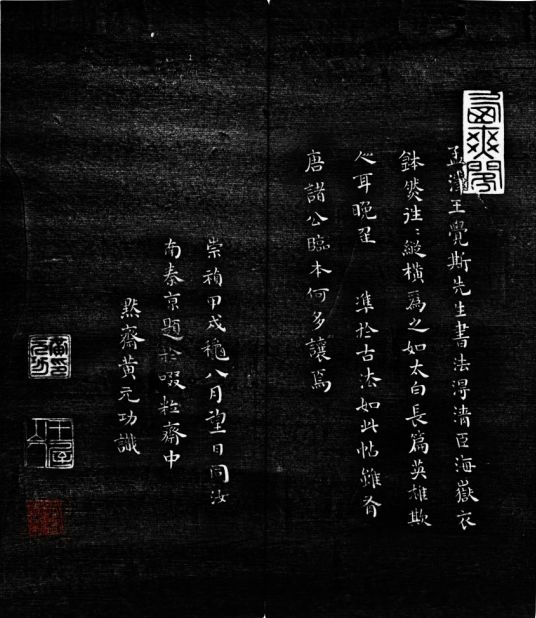 孟津王覺斯先生書法淂清臣海嶽衣
鉢然徃〻縱橫爲之如太白長篇英雄欺
人耳晚
準於古法如此帖雖有
唐諸公臨本何多讓焉
崇禎甲戌穐八月望日同汝
南秦京題於啜粒齋中
黙齋黃元功識